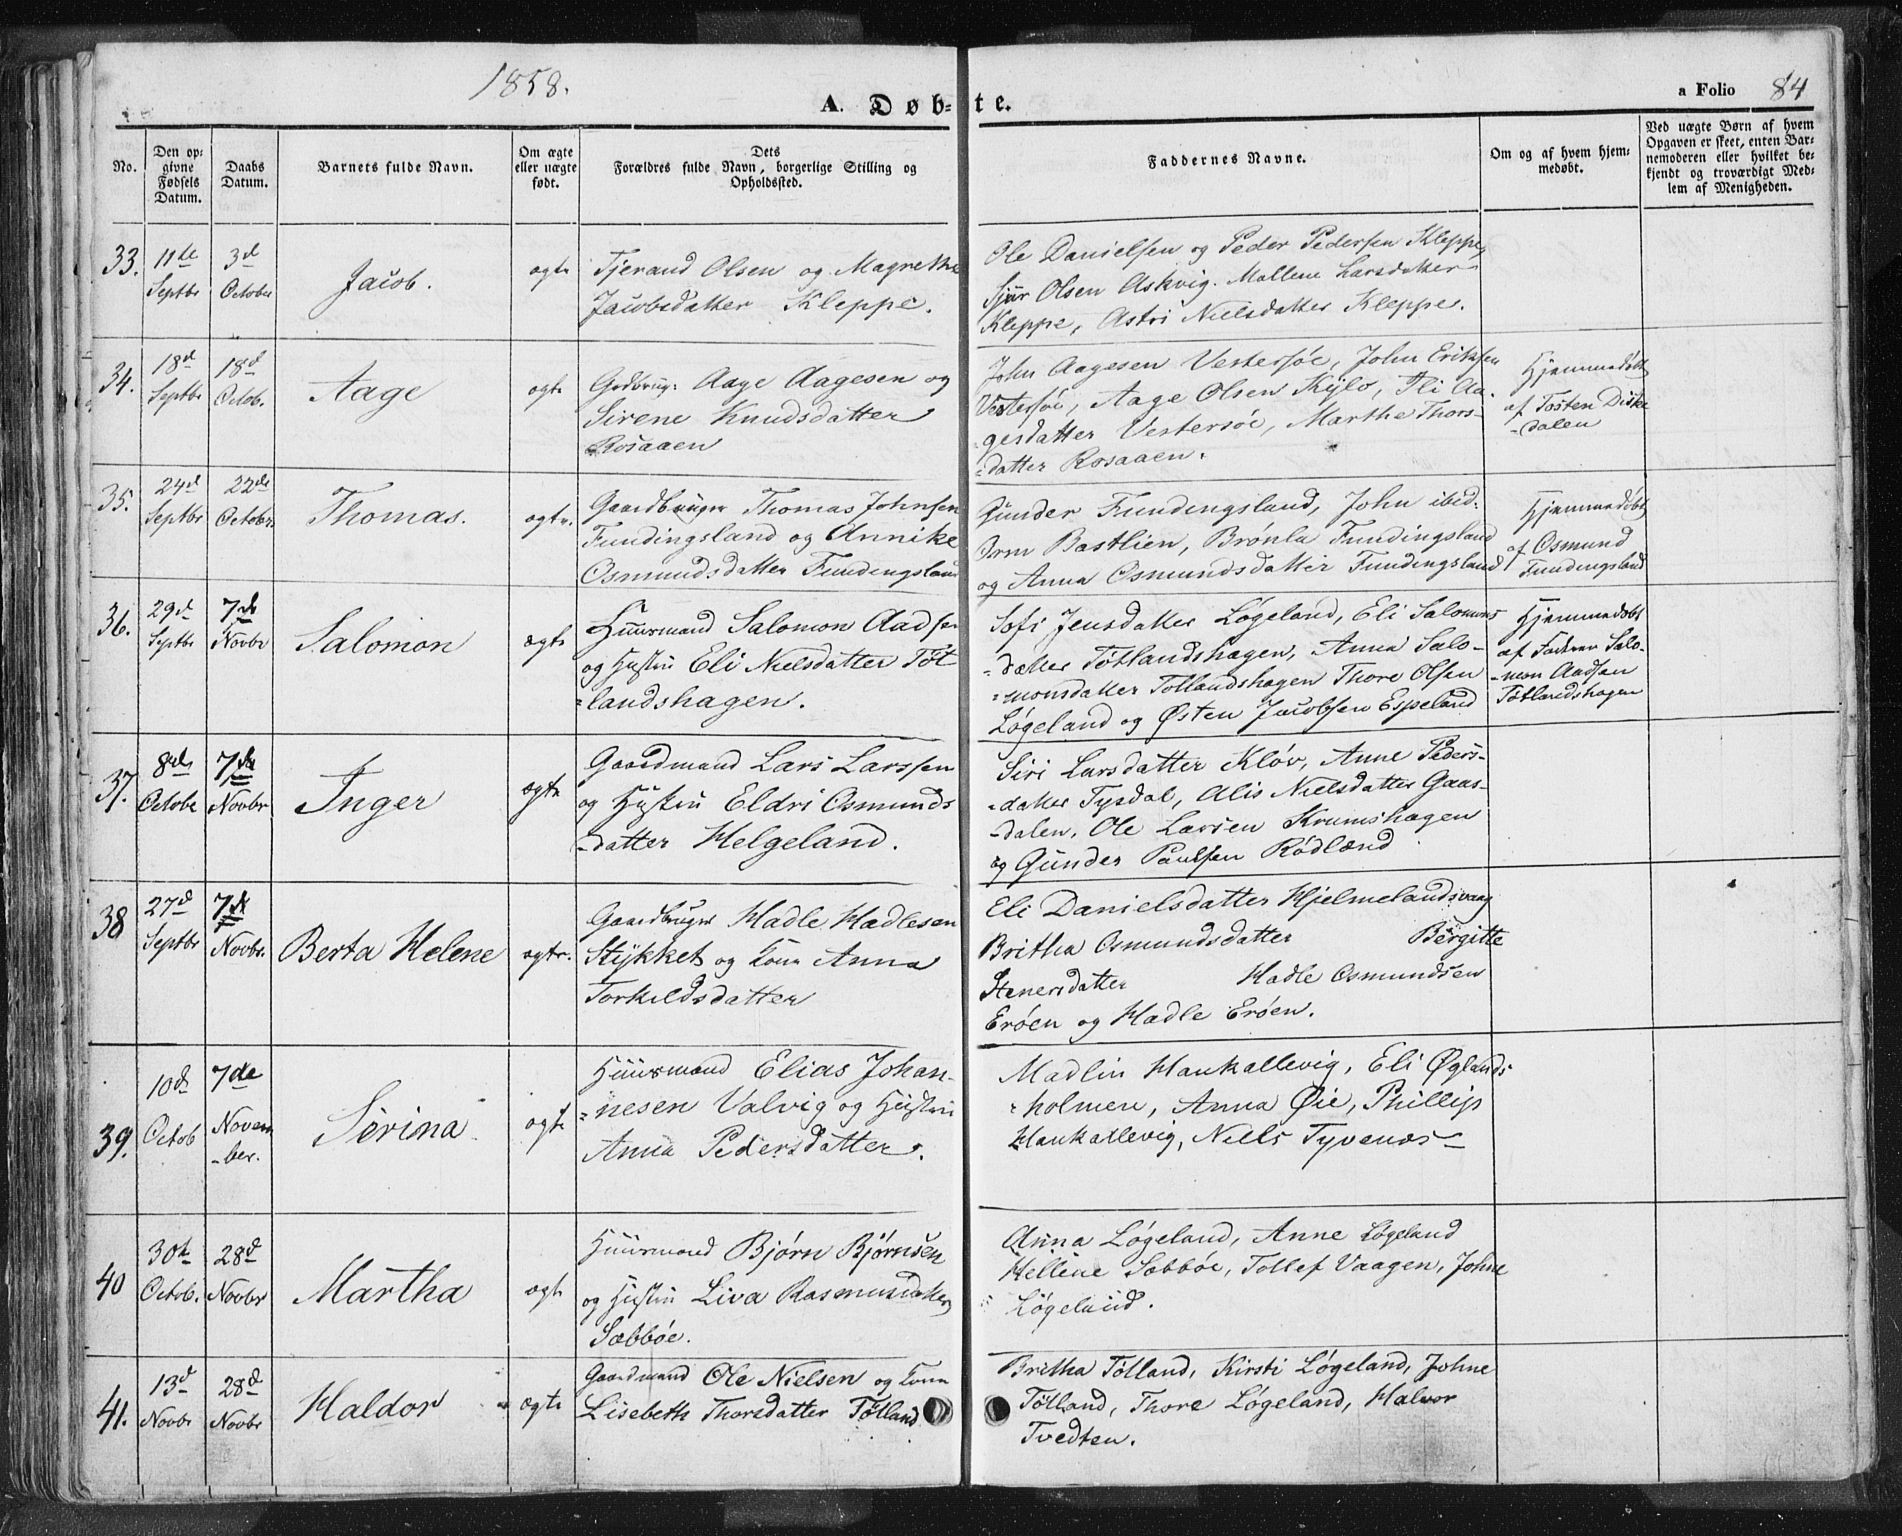 1858.
A. Døbte.
a Folio 84
No.
Den op-
givne
Fødsels
Datum.
Daabs
Datum.
Barnets fulde Navn.
Om ægte
eller uægte
født.
Dets
Forældres fulde Navn, borgerlige Stilling og
Opholdssted.
Faddernes Navne.
Om og af hvem hjem-
medøbt.
Ved uægte Børn af hvem
Opgaven er skeet, enten Bar-
nemoderen eller hvilket be-
kjendt og troværdigt Med-
lem af Menigheden.
33.
11te
Septbr
3d
October
Jacob.
ægte
Tjerand Olsen og Magrethe
Jacobsdatter Kleppe.
Ole Danielsen og Peder Pedersen Kleppe,
Sjur Olsen Askvig. Mallene Larsdatter
Kleppe, Astri Nielsdatter Kleppe.
34.
18d
Septbr
18d
Octob.
Aage
ægte
Grdbrug: Aage Aagesen og
Sirene Knudsdatter
Rosaaen
John Aagesen Vestersøe, John Eriksen
Vestersøe, Aage Olsen Kylo, Eli Aa-
gesdatter Vestersøe, Marthe Thors-
datter Rosaaen.
Hjemmedøbt
af Tosten Diske
-dalen
35.
24d
Septbr
22de
Octobr
Thomas.
ægte.
Gaardbruger Thomas Johnsen
Fundingsland og Annike
Osmundsdatter Fundingsland
Gunder Fundingsland, John ibid:
Orm Bastlien, Brønla Fundingsland
og Anna Osmundsdatter Fundingsland
Hjemmedøbt
af Osmund
Fundingsland
36.
29d
Septbr
7de
Novbr
Salomon
ægte
Huusmand Salomon Aadsen
og Hustru Eli Nielsdatter Tøt
=landshagen.
Sofi Jensdatter Løgeland, Eli Salomons
-datter Tøtlandshagen, Anna Salo-
=monsdatter Totlandshagen Thore Olsen
Løgeland og Østen Jacobsen Espeland
Hjemmedøbt
af Faderen Salo-
-mon Aadsen
Tøtlandshagen
37.
8de
Octobr
7de
Novbr
Inger
ægte
Gaardmand Lars Larssen
og Hustru Eldri Osmunds
-datter Helgeland.
Siri Larsdatter Kløv, Anne Peders-
-datter Tysdal, Alis Nielsdatter Gaas-
-dalen, Ole Larsen Krumshagen
og Gunder Paulsen Rødland
38
27d
Septbr
7de
Novbr.
Berta Helene
ægte.
Gaardbruger Hadle Hadlesen
Stykket og Kone Anna
Torkildsdatter
Eli Danielsdatter Hjelmelandsvaag
Britha Osmundsdatter Bergitte
Stenersdatter Hadle Osmundsen
Erøen og Hadle Erøen.
39.
10d
Octob
7de
Novem
-ber.
Serina
ægte
Huusmand Elias Johan-
=nesen Valvig og Hustru
Anna Pedersdatter.
Madlin Haukallevig, Eli Øglands
-holmen, Anna Øie, Phillip
Haukallevig, Niels Tyvenæs
40
30te
Octob.
28d
Novbr
Martha
ægte
Huusmand Bjørn Bjørnsen
og Hustru Liva Rasmusdatter
Sæbbøe.
Anna Løgeland, Anne Løgeland
Hellene Sæbbøe, Tollef Vaagen, Johne
Løgeland.
41.
13d
Novbr
28d
Novbr
Haldor
ægte
Gaardmand Ole Nielsen og Kone
Lisebeth Thorsdatter Tøtland
Britha Tøtland, Kirsti Løgeland, Johne
Tøtland, Thore Løgeland, Halvor
Tvedten.